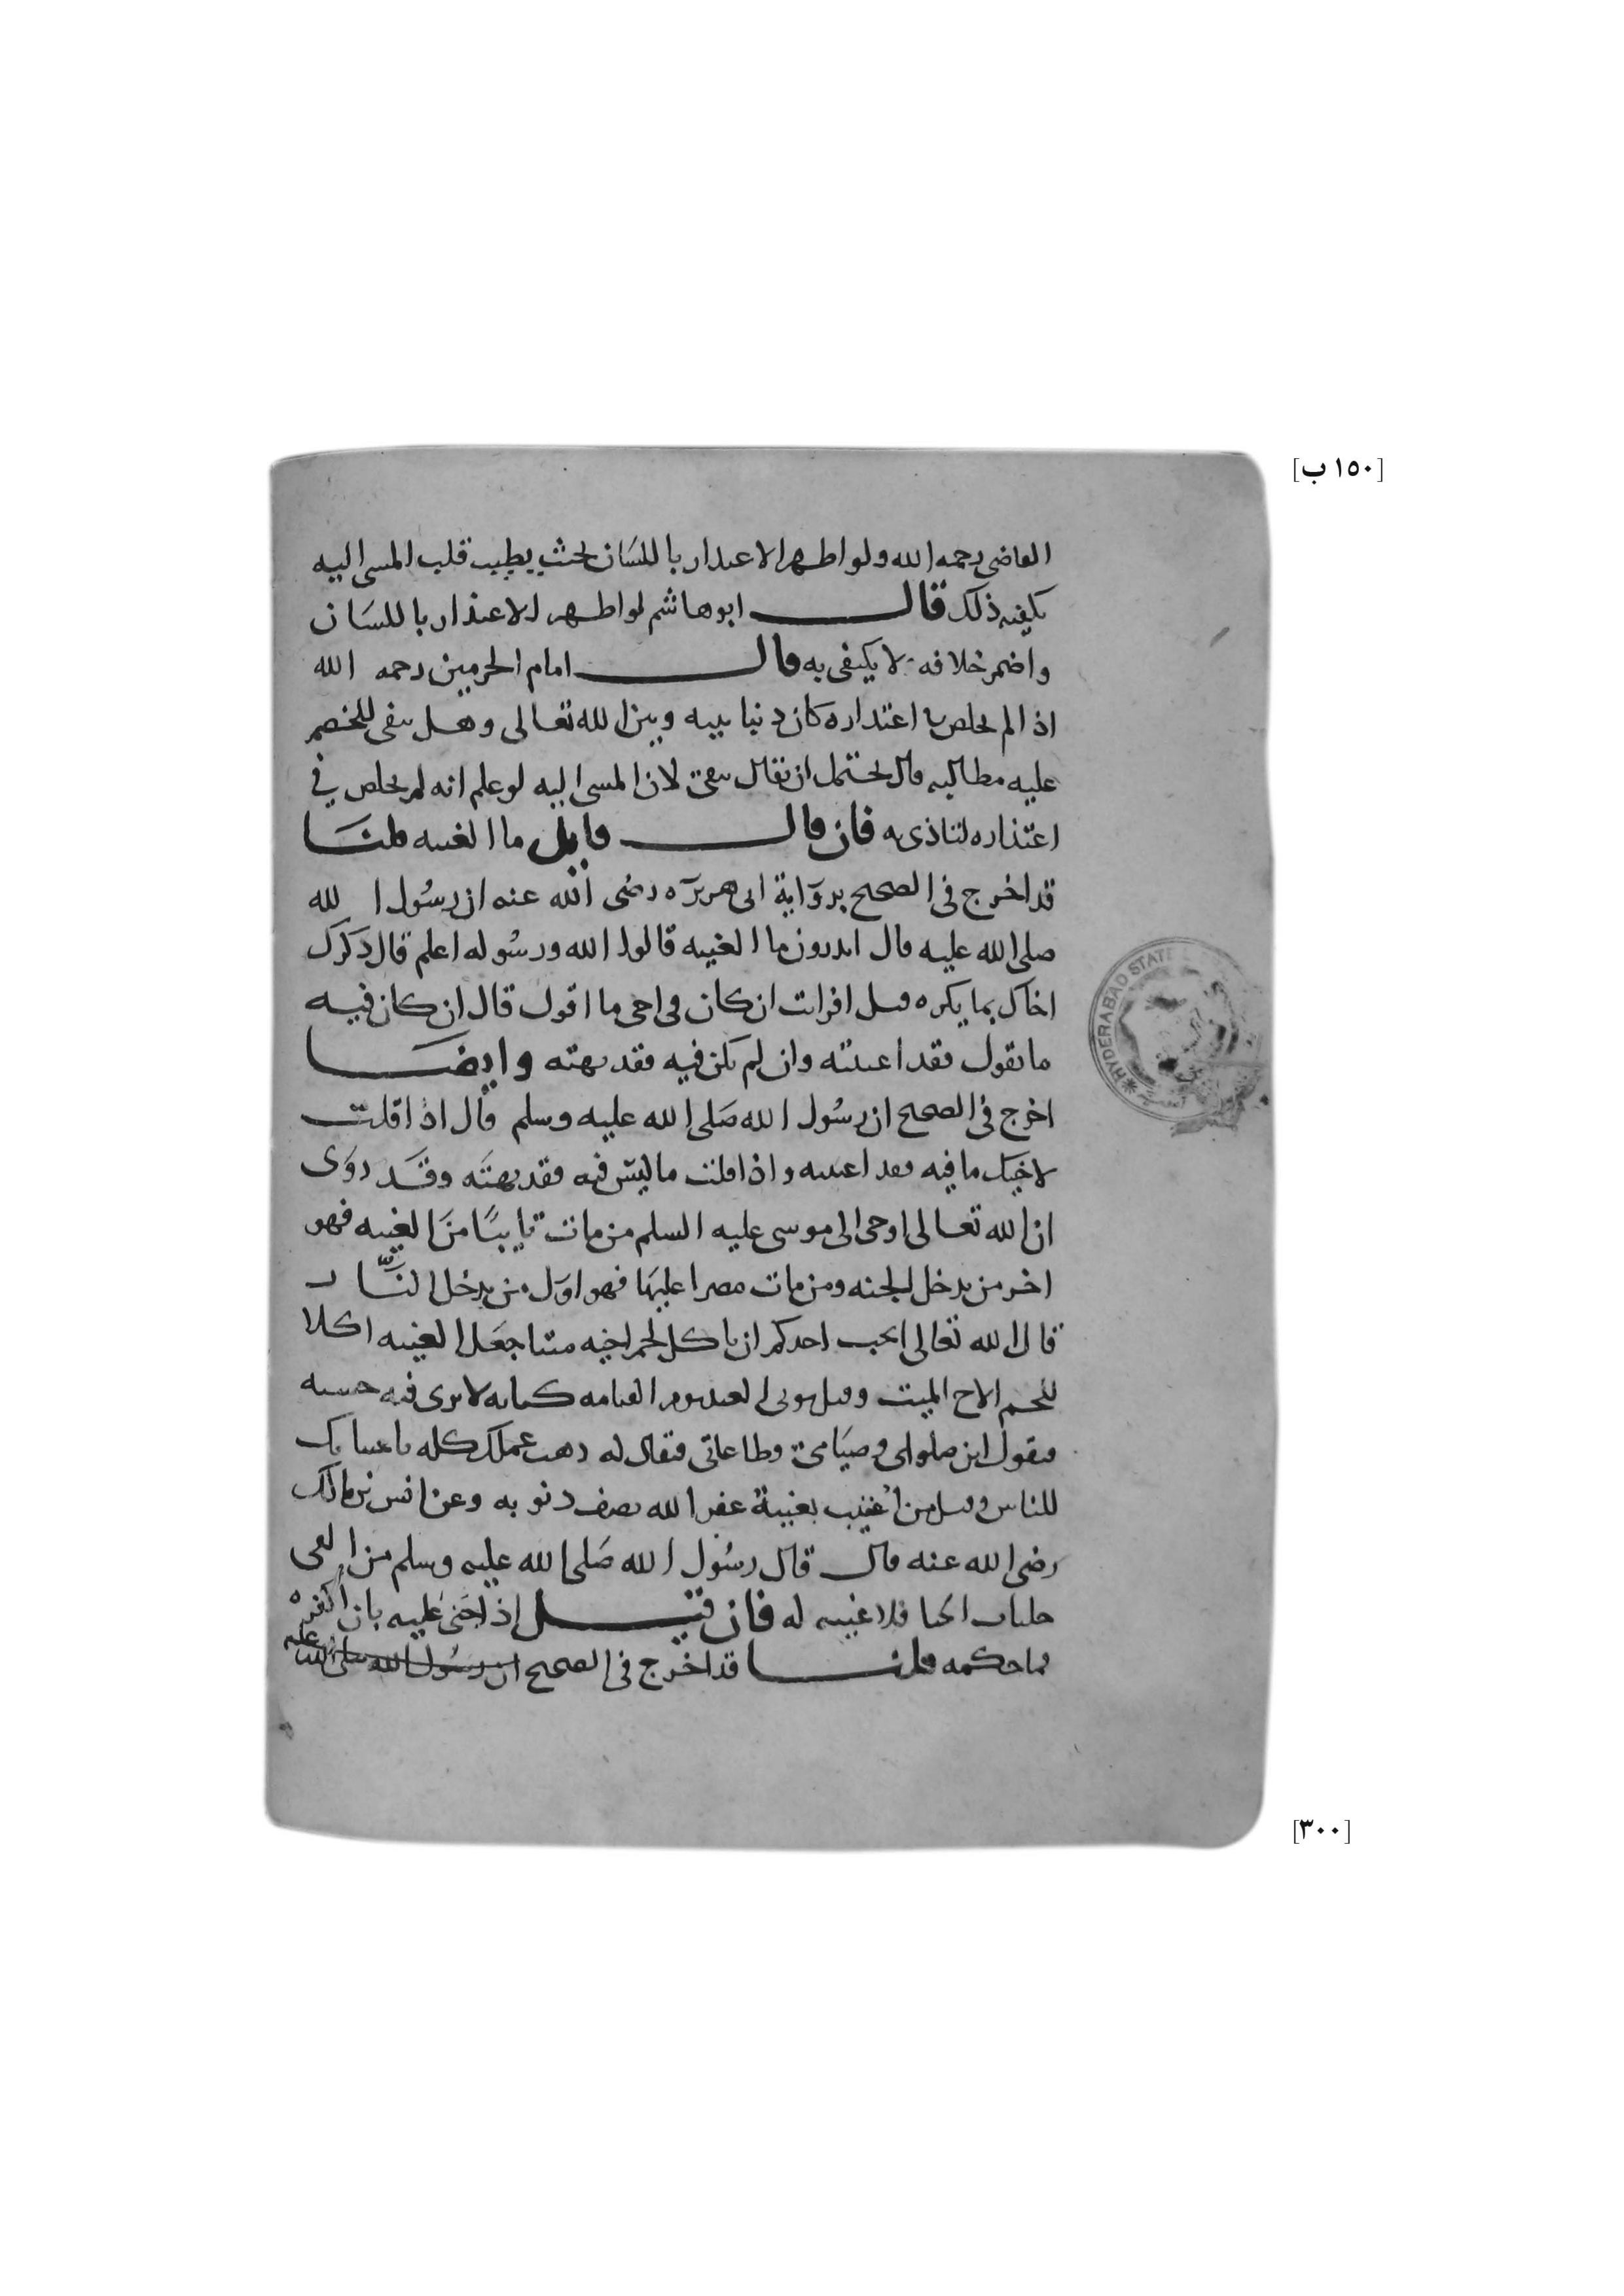 [١٥٠ ب]
القاضى رحمه الله ولو اظهر الاعتدار باللسان بحيث يطيب قلب المسى اليه
يكفيه ذلك قال ابو هاشم لو اظهر الاعتذار باللسان
واضمر خلافه لا يكفى به قال امام الحرمين رحمه الله
اذا لم يخلص اعتذاره كان دنبا بينه وبين الله تعالى وهل يبقى للخصم
عليه مطالبه قال يحتمل ان يقال يبقى لان المسى اليه لو علم انه لم يخلص في
اعتذاره لتاذى به فان قال قايل ما الغيبه قلنا
قد اخرج فى الصحيح برواية ابى هريره رضى الله عنه ان رسول الله
صلى الله عليه قال اتدرون ما الغيبه قالوا الله ورسوله اعلم قال ذكرك
اخاك بما يكره قيل افرايت ان كان فى اخى ما اقول قال ان كان فيه
ما تقول فقد اغتبته وان لم يكن فيه فقد بهته وايضا
اخرج فى الصحيح ان رسول الله صلى الله عليه وسلم قال اذا قلت
لاخيك ما فيه فقد اغتبته واذا قلت ما ليس فيه فقد بهته وقد روى
ان الله تعالى اوحى الى موسى عليه السلم من مات تايبا من الغيبه فهو
اخر من يدخل الجنه ومن مات مصرا عليها فهو اول من يدخل النار
قال الله تعالى ايحب احدكم ان ياكل لحم اخيه ميتا جعل الغيبه اكلا
للحم الاخ الميت وقيل يوتى العبد يوم القيامه كتابه لا يرى فيه حسنه
فيقول اين صلواتى وصيامى وطاعاتى فيقال له ذهب عملك كله باغتيابك
للناس وقيل من اغتيب بغيبة غفر الله نصف ذنوبه وعن انس بن مالك
رضى الله عنه قال قال رسول الله صلى الله عليه وسلم من القى
جلباب الحيا فلا غيبه له فان قيل اذا جنى عليه بان
فما حكمه قلنا قد اخرج فى الصحيح ان رسول الله صلى الله عليه
HYDERABAD STATE
[٣٠٠]